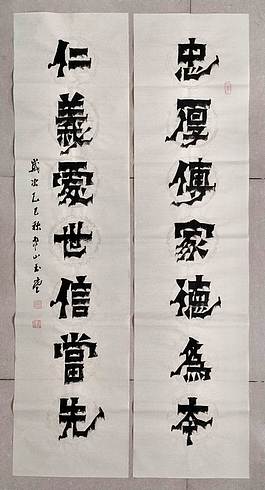 忠厚傳家德為本
仁義愛世信當先
歲次乙巳秋